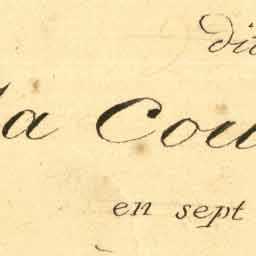 dit
la Cou
en sept